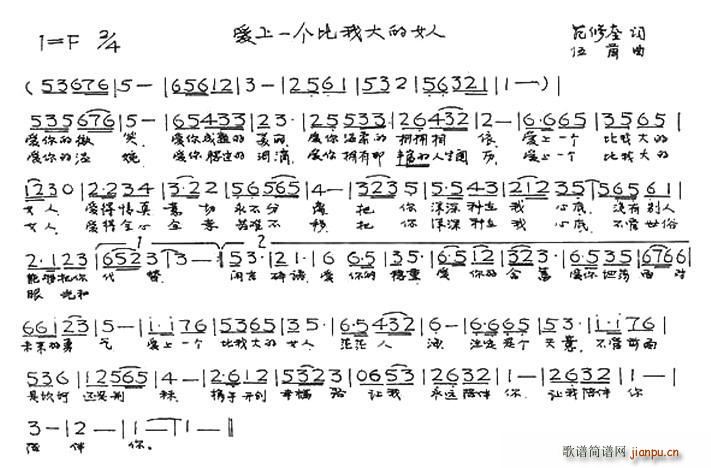 爱上一个比我大的女人
1=F 2/4
范修奎 词
伍 曲
( 53676 | 5 — | 65612 | 3 — | 2561 | 532 | 56321 | 1 — )
535676 | 5 — | 65433 | 23· | 25533 | 26432 | 2 — | 6·665 | 3565 |
爱你的微笑 爱你成熟的美丽 爱你温柔的 相依 爱上一个 比我大的
爱你的 爱你 的 爱你拥有那丰富的人生阅历 爱上一个 比我大的
1230 | 2·234 | 3·22 | 56565 | 4 — | 3235 | 5·543 | 2123 | 35 | 565 61 |
女人 爱得情真意切 永不分离 把你深深种在我心底 没有别人
女人 爱得全心全意 不移 把你深深种在我心底 不管世俗
1 2
2·123 | 6523 | 3 — :| 53· | 21· | 6 6·5 | 35· | 6·512 | 323· | 6·535 | 6766 |
能够把你代替 闲言碎语 爱你的稳重 爱你的 爱你坦荡面对
眼光和
66123 | 5 — | 1·176 | 5365 | 35· | 6·5432 | 6 — | 6·665 | 53· | 1·176 |
未来的勇气 爱上一个 比我大的女人 茫茫人海 注定是个天意 不管前面
536 | 12565 | 4 — | 2·612 | 5323 | 0653 | 2632 | 1 — | 2632 | 1 — |
是坎坷还是荆棘 携手开创幸福路 让我永远陪伴你 让我陪伴你
3 — | 2 — | 1 — | 1 — ‖
陪伴你。
歌谱简谱网
jianpu.cn